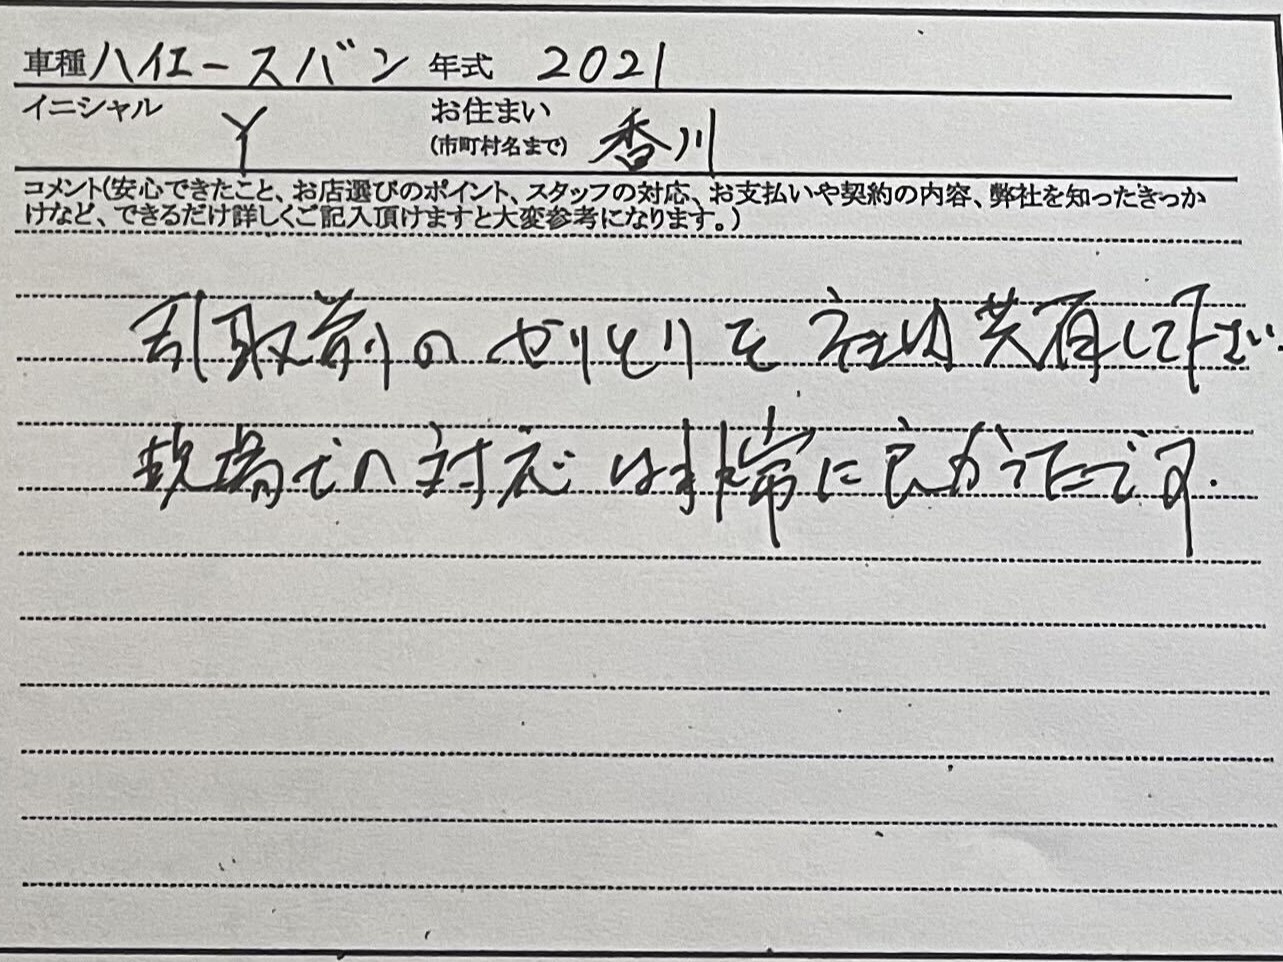 車種 ハイエースバン 年式 2021
イニシャル Y お住まい (市町村名まで) 香川
コメント(安心できたこと、お店選びのポイント、スタッフの対応、お支払いや契約の内容、弊社を知ったきっか
けなど、できるだけ詳しくご記入頂けますと大変参考になります。)
引取前のやりとりを社内共有して下さい.
現場での対応は非常に良かったです.